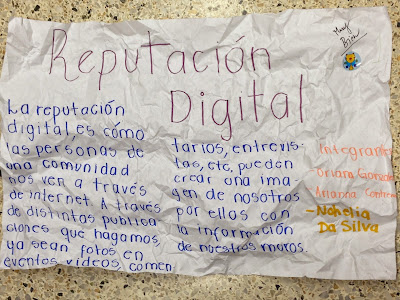 Reputación
Digital
Muy
Bien
La reputación
digital es cómo
las personas de
una comunidad
nos ven a través
de internet A través
de distintas publica-
ciones que hagamos,
ya sean fotos en
eventos videos, comen
tarios, entrevis-
tas, etc, pueden
crear una ima-
gen de nosotros
por ellos con
la información
de nuestros muros.
Integrantes
Oriana
Arianna
- Nohelia
Da Silva